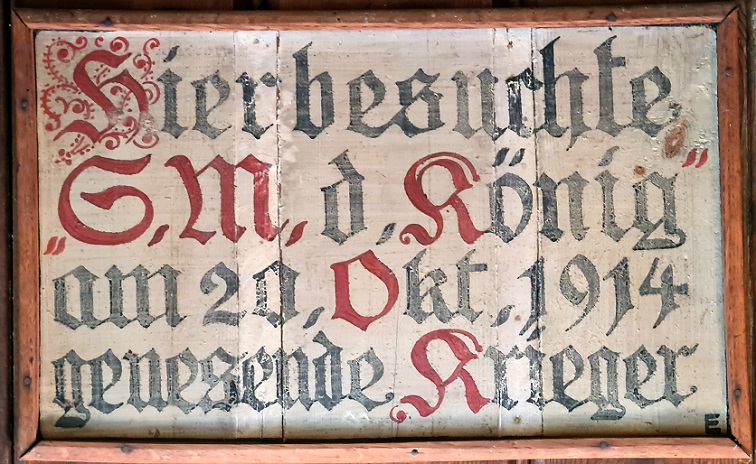 Hier besuchte
„S. M. d. König“
am 20. Okt. 1914
genesende Krieger